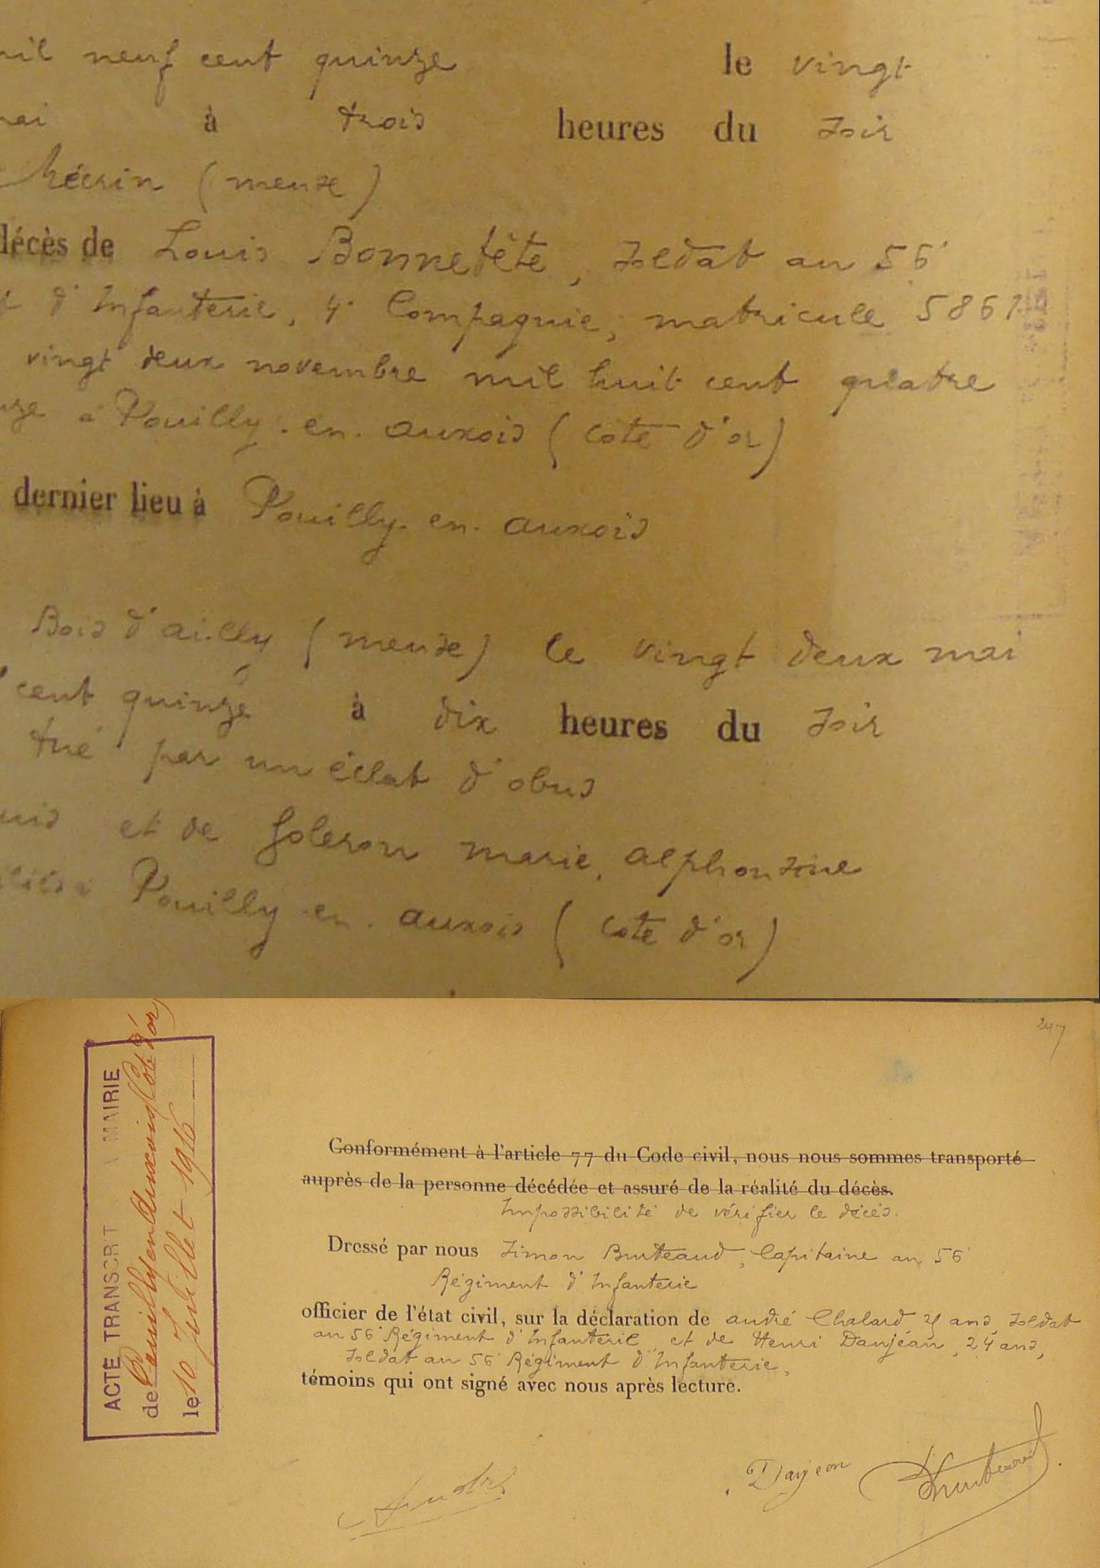 mil neuf cent quinze le vingt
mai à trois heures du soir
Mécrin (meuse)
décès de Louis Bonnetête, soldat au 56e
t d'Infanterie, 4e Compagnie, matricule 5867
vingt deux novembre mil huit cent quatre
nze à Pouilly-en-auxois (côte d'or)
dernier lieu à Pouilly-en-auxois
Bois d'ailly (meuse) le vingt deux mai
cent quinze à dix heures du soir
tué par un éclat d'obus
uis et de marie, alphonsine
Pouilly-en-auxois (cote d'or)
247
ACTE TRANSCRIT A MAIRIE
de Pouilly en Auxois (Côte d'or)
le 10 juillet 1916
Conformément à l'article 77 du Code civil, nous nous sommes transporté
auprès de la personne décédée et assuré de la réalité du décès.
Impossibilité de vérifier le décès.
Dressé par nous Simon Burteaud, Capitaine au 56e
Régiment d'Infanterie
officier de l'état civil, sur la déclaration de andré Chalard ans, soldat
au 56e Régiment d'Infanterie et de Henri Danjean, 24 ans,
soldat au 56e Régiment d'Infanterie,
témoins qui ont signé avec nous après lecture.
Danjean